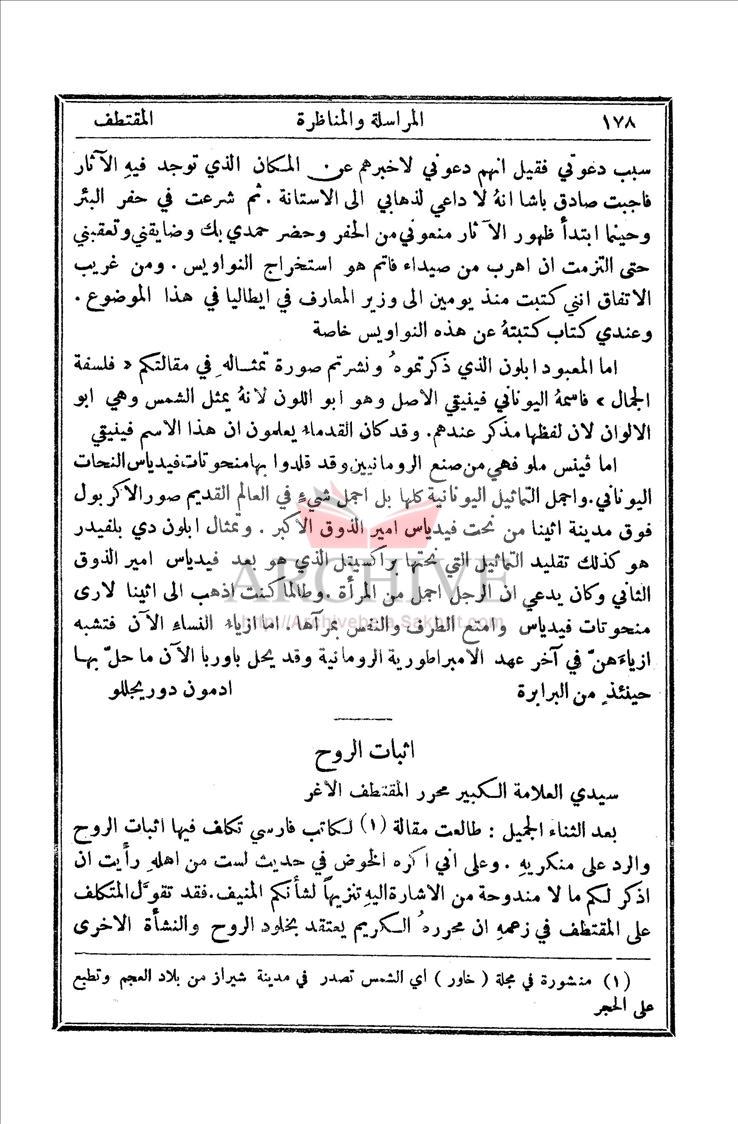 ١٧٨ المراسلة والمناظرة المقتطف
سبب دعوتي فقيل انهم دعوني لاخبرهم عن المكان الذي توجد فيهِ الآثار
فاجبت صادق باشا انهُ لا داعي لذهابي الى الاستانة . ثم شرعت في حفر البئر
وحينما ابتدأ ظهور الآثار منعوني من الحفر وحضر حمدي بك وضايقني وتعقبني
حتى التزمت ان اهرب من صيداء فاتم هو استخراج النواويس . ومن غريب
الاتفاق انني كتبت منذ يومين الى وزير المعارف في ايطاليا في هذا الموضوع .
وعندي كتاب كتبتهُ عن هذه النواويس خاصة
اما المعبود ابلون الذي ذكرتموهُ ونشرتم صورة تمثاله في مقالتكم « فلسفة
الجمال » فاسمهُ اليوناني فينيقي الاصل وهو ابو اللون لانهُ يمثل الشمس وهي ابو
الالوان لان لفظها مذكر عندهم . وقد كان القدماء يعلمون ان هذا الاسم فينيقي
اما ڤينس ملو فهي من صنع الرومانيين وقد قلدوا بها منحوتات فيدياس النحات
اليوناني . واجمل التماثيل اليونانية كلها بل اجمل شيءٍ في العالم القديم صور الاكربول
فوق مدينة اثينا من نحت فيدياس امير الذوق الاكبر . وتمثال ابلون دي بلفيدر
هو كذلك تقليد التماثيل التي نحتها براكسيتل الذي هو بعد فيدياس امير الذوق
الثاني وكان يدعي ان الرجل اجمل من المرأة . وطالما كنت اذهب الى اثينا لارى
منحوتات فيدياس وامتع الطرف والنفس بمرآها . اما ازياء النساء الآن فتشبه
ازياءَهنّ في آخر عهد الامبراطورية الرومانية وقد يحل باوربا الآن ما حلّ بها
حينئذٍ من البرابرة ادمون دوريجللو
اثبات الروح
سيدي العلامة الكبير محرر المقتطف الاغر
بعد الثناء الجميل : طالعت مقالة (١) لكاتب فارسي تكلف فيها اثبات الروح
والرد على منكريهِ . وعلى اني اكره الخوض في حديث لست من اهلهِ رأيت ان
اذكر لكم ما لا مندوحة من الاشارة اليهِ تنزيهاً لشأنكم المنيف . فقد تقوَّل المتكلف
على المقتطف في زعمهِ ان محررهُ الكريم يعتقد بخلود الروح والنشأة الاخرى
(١) منشورة في مجلة ( خاور ) اي الشمس تصدر في مدينة شيراز من بلاد العجم وتطبع
على الحجر
ARCHIVE
http://Archivebeta.Sakhrit.com